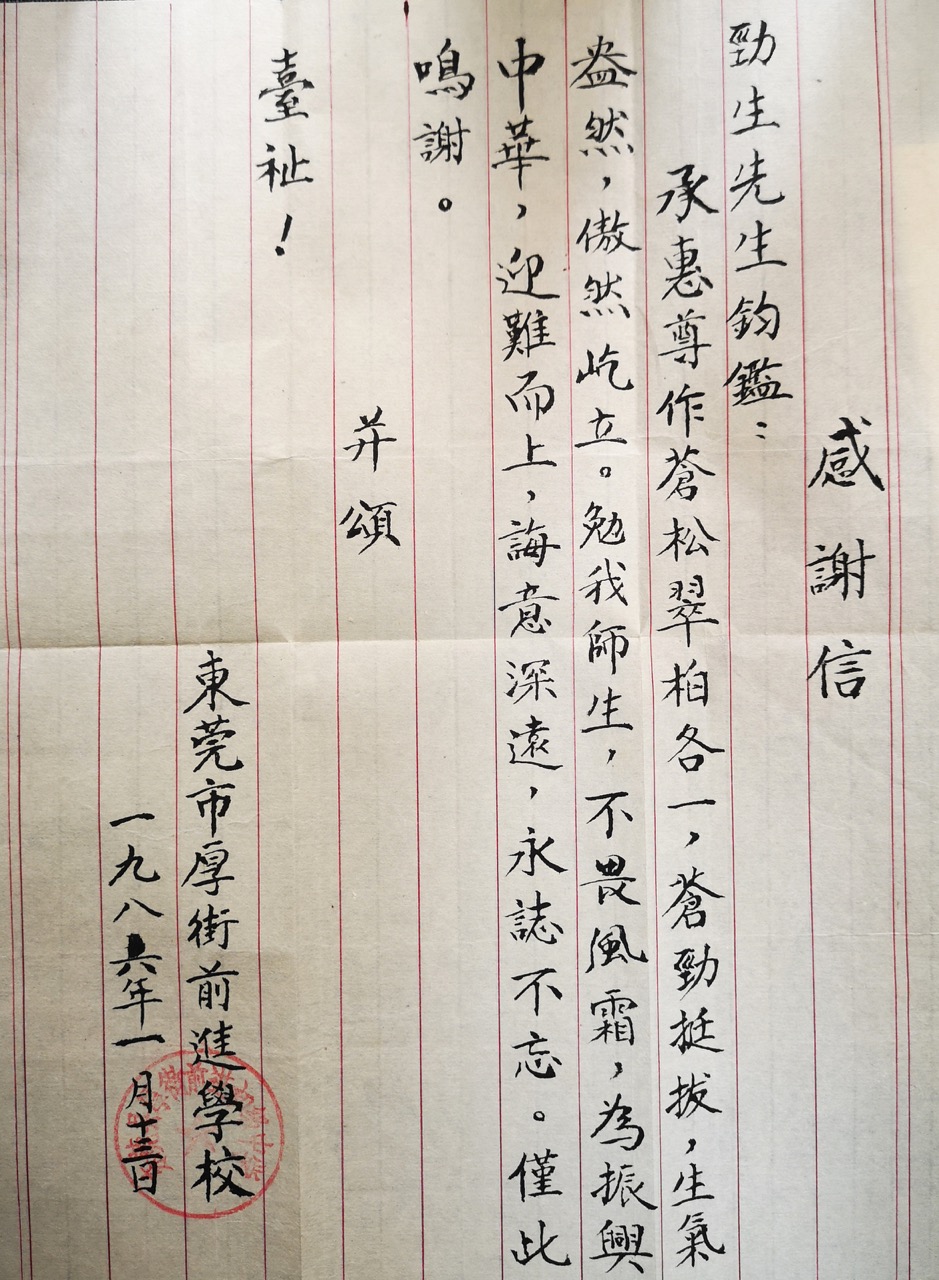 感謝信
勁生先生鈞鑑：
承惠尊作蒼松翠柏各一，蒼勁挺拔，生氣
盎然，傲然屹立。勉我師生，不畏風霜，為振興
中華，迎難而上，誨意深遠，永誌不忘。僅此
鳴謝。
并頌
臺祉！
東莞市厚街前進學校
一九八六年一月十三日